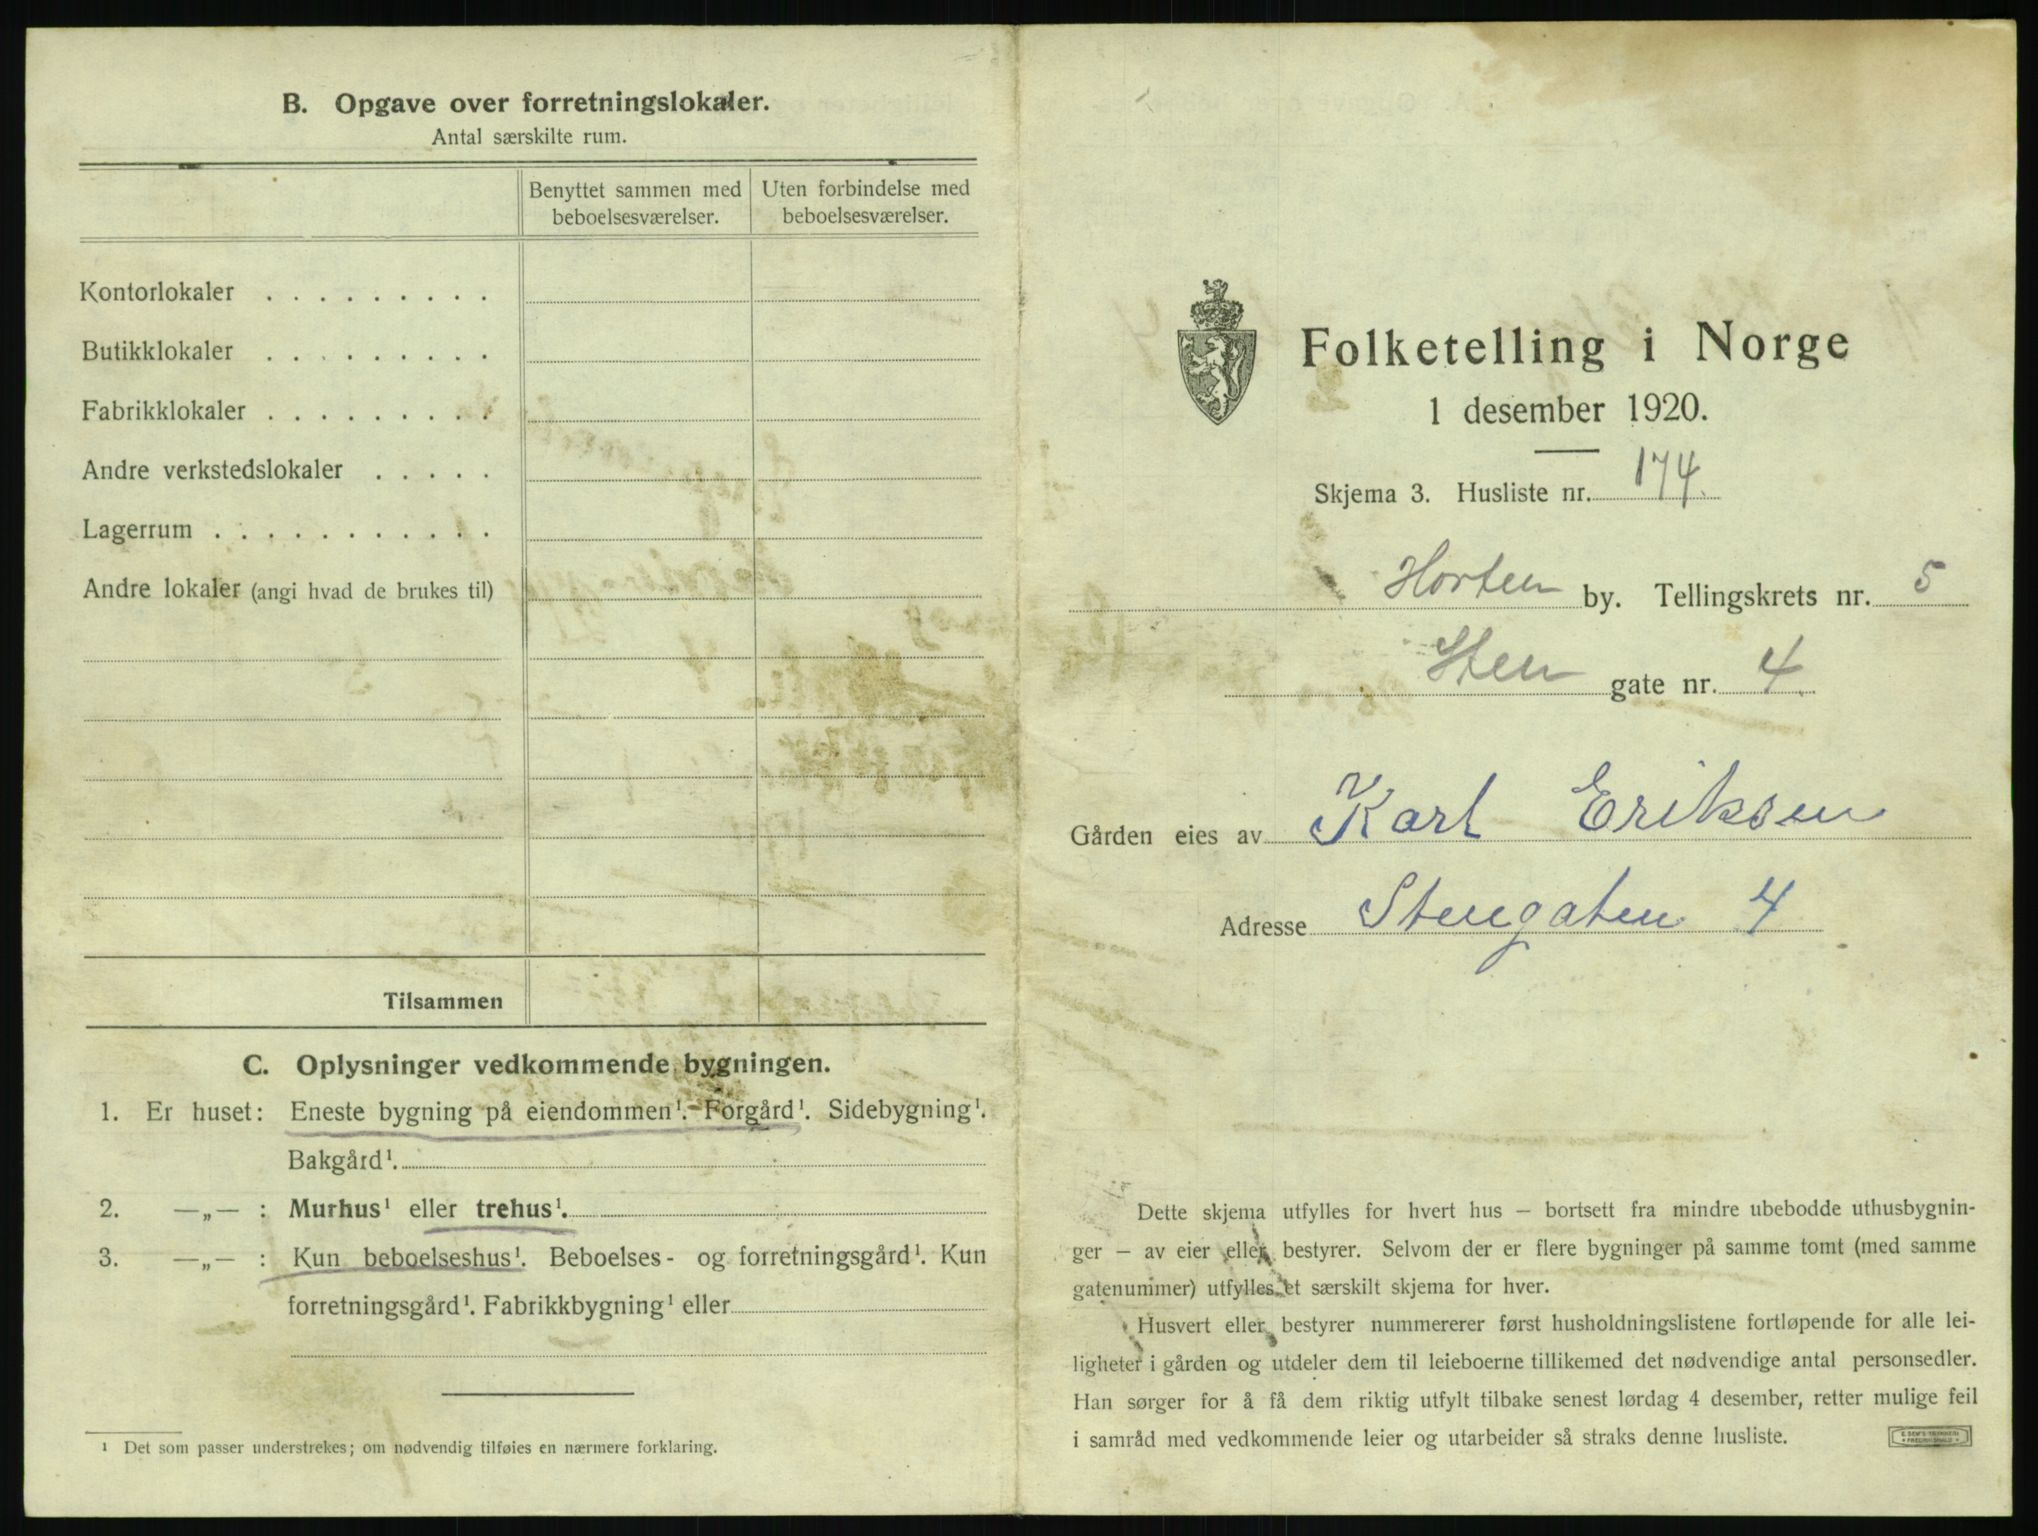 B. Opgave over forretningslokaler.
Antal særskilte rum.
Benyttet sammen med beboelsesværelser.
Uten forbindelse med beboelsesværelser.
Kontorlokaler . . . . . . . . .
Butikklokaler . . . . . . . . .
Fabrikklokaler . . . . . . . . .
Andre verkstedslokaler . . . . .
Lagerrum . . . . . . . . . . .
Andre lokaler (angi hvad de brukes til)
Tilsammen
C. Oplysninger vedkommende bygningen.
1. Er huset: Eneste bygning på eiendommen¹. Forgård¹. Sidebygning¹.
Bakgård¹.
2. —„— : Murhus¹ eller trehus¹.
3. —„— : Kun beboelseshus¹. Beboelses- og forretningsgård¹. Kun
forretningsgård¹. Fabrikkbygning¹ eller
¹ Det som passer understrekes; om nødvendig tilføies en nærmere forklaring.
Folketelling i Norge
1 desember 1920.
Skjema 3. Husliste nr. 174.
Horten by. Tellingskrets nr. 5
Sten gate nr. 4.
Gården eies av Karl Eriksen
Adresse Stengaten 4
Dette skjema utfylles for hvert hus – bortsett fra mindre ubebodde uthusbygnin-
ger – av eier eller bestyrer. Selvom der er flere bygninger på samme tomt (med samme
gatenummer) utfylles et særskilt skjema for hver.
Husvert eller bestyrer nummererer først husholdningslistene fortløpende for alle lei-
ligheter i gården og utdeler dem til leieboerne tillikemed det nødvendige antal personsedler.
Han sørger for å få dem riktig utfylt tilbake senest lørdag 4 desember, retter mulige feil
i samråd med vedkommende leier og utarbeider så straks denne husliste.